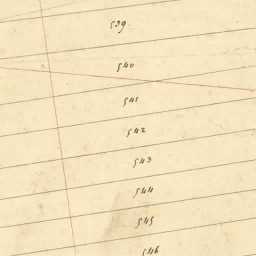 539.
540
541
542
543
544
545
546